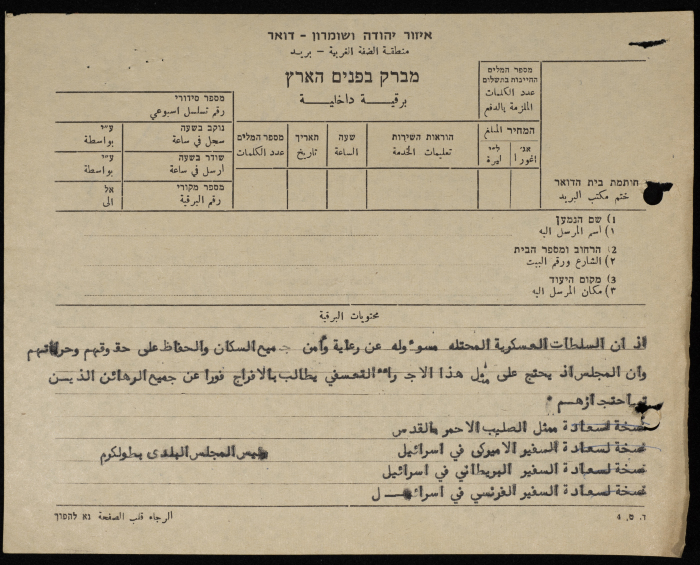 איזור יהודה ושומרון - דואר
منطقة الضفة الغربية - بريد
מברק בפנים הארץ
برقية داخلية
מספר המלים
החייבות בתשלום
عدد الكلمات
الملزمة بالدفع
המחיר المبلغ
אג׳ اغورا
ל״י ليرة
הוראות השירות
تعليمات الخدمة
שעה
الساعة
תאריך
تاريخ
מספר המלים
عدد الكلمات
מספר סידורי
رقم تسلسل اسبوعي
נוקב בשעה
سجل في ساعة
ע״י
بواسطة
שודר בשעה
أرسل في ساعة
ע״י
بواسطة
מספר מקורי
رقم البرقية
אל
الى
חותמת בית הדואר
ختم مكتب البريد
1) שם הנמען
١) اسم المرسل اليه
2) הרחוב ומספר הבית
٢) الشارع ورقم البيت
3) מקום היעוד
٣) مكان المرسل اليه
محتويات البرقية
اذ ان السلطات العسكرية المحتله مسوءوله عن رعاية وأمن جميع السكان والحفاظ على حقوقهم وحرياتهم
وان المجلس اذ يحتج على مثل هذا الاجراء التعسفي يطالب بالافراج فورا عن جميع الرهائن الذين
تم احتجازهم .
نسخة لسعادة ممثل الصليب الاحمر بالقدس
نسخة لسعادة السفير الاميركي في اسرائيل
رئيس المجلس البلدى بطولكرم
نسخة لسعادة السفير البريطاني في اسرائيل
نسخة لسعادة السفير الفرنسي في اسرائيل
ד. ט. 4
الرجاء قلب الصفحة נא להפוך